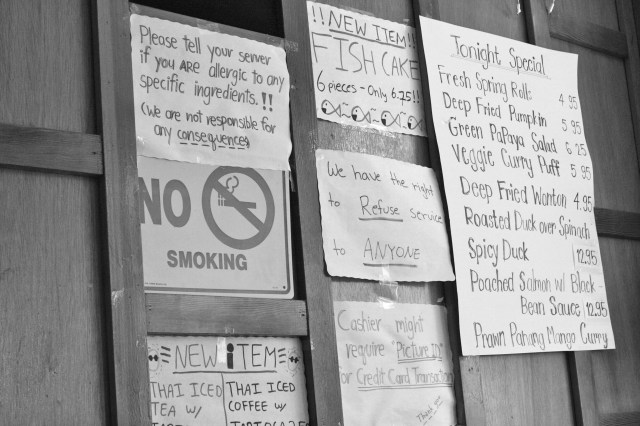 Please tell your server
if you ARE allergic to any
specific ingredients.!!
(We are not responsible for
any consequences
NO
SMOKING
NEW iTEM
THAI ICED
TEA W/
THAI ICED
COFFEE W/
!!NEW ITEM!!
FISH CAKE
6 pieces - Only 6.25!!
We have the right
to Refuse service
to ANYONE
Cashier might
require "Picture ID"
for Credit Card Transaction
Thank
Tonight Special
Fresh Spring Rolls 4.95
Deep Fried Pumpkin 5.95
Green Papaya Salad 6.25
Veggie Curry Puff 5.95
Deep Fried Wonton 4.95
Roasted Duck over Spinach
Spicy Duck 12.95
Poached Salmon w/ Black-
Bean Sauce 12.95
Prawn Pahang Mango Curry